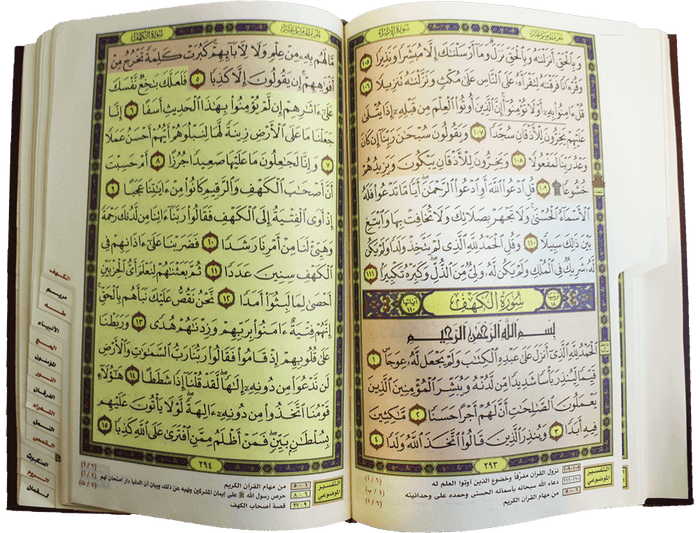 سورة الإسراء
الجزء الخامس عشر
وَبِالْحَقِّ أَنزَلْنَٰهُ وَبِالْحَقِّ نَزَلَ وَمَا أَرْسَلْنَٰكَ إِلَّا مُبَشِّرًا وَنَذِيرًا ١٠٥
وَقُرْءَانًا فَرَقْنَٰهُ لِتَقْرَأَهُ عَلَى النَّاسِ عَلَىٰ مُكْثٍ وَنَزَّلْنَٰهُ تَنزِيلًا ١٠٦
قُلْ ءَامِنُوا بِهِ أَوْ لَا تُؤْمِنُوا إِنَّ الَّذِينَ أُوتُوا الْعِلْمَ مِن قَبْلِهِ إِذَا يُتْلَىٰ
عَلَيْهِمْ يَخِرُّونَ لِلْأَذْقَانِ سُجَّدًا ١٠٧ وَيَقُولُونَ سُبْحَٰنَ رَبِّنَا إِن كَانَ
وَعْدُ رَبِّنَا لَمَفْعُولًا ١٠٨ وَيَخِرُّونَ لِلْأَذْقَانِ يَبْكُونَ وَيَزِيدُهُمْ
خُشُوعًا ١٠٩ قُلِ ادْعُوا اللَّهَ أَوِ ادْعُوا الرَّحْمَٰنَ أَيًّا مَّا تَدْعُوا فَلَهُ
الْأَسْمَاءُ الْحُسْنَىٰ وَلَا تَجْهَرْ بِصَلَاتِكَ وَلَا تُخَافِتْ بِهَا وَابْتَغِ
بَيْنَ ذَٰلِكَ سَبِيلًا ١١٠ وَقُلِ الْحَمْدُ لِلَّهِ الَّذِي لَمْ يَتَّخِذْ وَلَدًا وَلَمْ يَكُن
لَّهُ شَرِيكٌ فِي الْمُلْكِ وَلَمْ يَكُن لَّهُ وَلِيٌّ مِّنَ الذُّلِّ وَكَبِّرْهُ تَكْبِيرًا ١١١
سورة الكهف
بِسْمِ اللَّهِ الرَّحْمَٰنِ الرَّحِيمِ
الْحَمْدُ لِلَّهِ الَّذِي أَنزَلَ عَلَىٰ عَبْدِهِ الْكِتَٰبَ وَلَمْ يَجْعَل لَّهُ عِوَجًا ١
قَيِّمًا لِّيُنذِرَ بَأْسًا شَدِيدًا مِّن لَّدُنْهُ وَيُبَشِّرَ الْمُؤْمِنِينَ الَّذِينَ
يَعْمَلُونَ الصَّٰلِحَٰتِ أَنَّ لَهُمْ أَجْرًا حَسَنًا ٢ مَّٰكِثِينَ
فِيهِ أَبَدًا ٣ وَيُنذِرَ الَّذِينَ قَالُوا اتَّخَذَ اللَّهُ وَلَدًا ٤
٢٩٣
التفسير الموضوعي
نزول القرآن مفرقاً وخضوع الذين أوتوا العلم له
دعاء الله سبحانه بأسمائه الحسنى وحمده على وحدانيته
من مهام القرآن الكريم
سورة الكهف
الجزء الخامس عشر
مَّا لَهُم بِهِ مِنْ عِلْمٍ وَلَا لِءَابَائِهِمْ كَبُرَتْ كَلِمَةً تَخْرُجُ مِنْ
أَفْوَٰهِهِمْ إِن يَقُولُونَ إِلَّا كَذِبًا ٥ فَلَعَلَّكَ بَٰخِعٌ نَّفْسَكَ
عَلَىٰ ءَاثَٰرِهِمْ إِن لَّمْ يُؤْمِنُوا بِهَٰذَا الْحَدِيثِ أَسَفًا ٦ إِنَّا
جَعَلْنَا مَا عَلَى الْأَرْضِ زِينَةً لَّهَا لِنَبْلُوَهُمْ أَيُّهُمْ أَحْسَنُ عَمَلًا
٧ وَإِنَّا لَجَٰعِلُونَ مَا عَلَيْهَا صَعِيدًا جُرُزًا ٨ أَمْ حَسِبْتَ
أَنَّ أَصْحَٰبَ الْكَهْفِ وَالرَّقِيمِ كَانُوا مِنْ ءَايَٰتِنَا عَجَبًا ٩
إِذْ أَوَى الْفِتْيَةُ إِلَى الْكَهْفِ فَقَالُوا رَبَّنَا ءَاتِنَا مِن لَّدُنكَ رَحْمَةً
وَهَيِّئْ لَنَا مِنْ أَمْرِنَا رَشَدًا ١٠ فَضَرَبْنَا عَلَىٰ ءَاذَانِهِمْ فِي
الْكَهْفِ سِنِينَ عَدَدًا ١١ ثُمَّ بَعَثْنَٰهُمْ لِنَعْلَمَ أَيُّ الْحِزْبَيْنِ
أَحْصَىٰ لِمَا لَبِثُوا أَمَدًا ١٢ نَّحْنُ نَقُصُّ عَلَيْكَ نَبَأَهُم بِالْحَقِّ
إِنَّهُمْ فِتْيَةٌ ءَامَنُوا بِرَبِّهِمْ وَزِدْنَٰهُمْ هُدًى ١٣ وَرَبَطْنَا
عَلَىٰ قُلُوبِهِمْ إِذْ قَامُوا فَقَالُوا رَبُّنَا رَبُّ السَّمَٰوَٰتِ وَالْأَرْضِ
لَن نَّدْعُوَا مِن دُونِهِ إِلَٰهًا لَّقَدْ قُلْنَا إِذًا شَطَطًا ١٤ هَٰؤُلَاءِ
قَوْمُنَا اتَّخَذُوا مِن دُونِهِ ءَالِهَةً لَّوْلَا يَأْتُونَ عَلَيْهِم
بِسُلْطَٰنٍ بَيِّنٍ فَمَنْ أَظْلَمُ مِمَّنِ افْتَرَىٰ عَلَى اللَّهِ كَذِبًا ١٥
٢٩٤
التفسير الموضوعي
من مهام القرآن الكريم
حرص رسول الله ﷺ على إيمان المشركين ونهيه عن ذلك وبيان أن الدنيا دار امتحان لهم
قصة أصحاب الكهف
الكهف
مريم
طه
الأنبياء
الحج
المؤمنون
النور
الفرقان
الشعراء
النمل
القصص
العنكبوت
الروم
لقمان